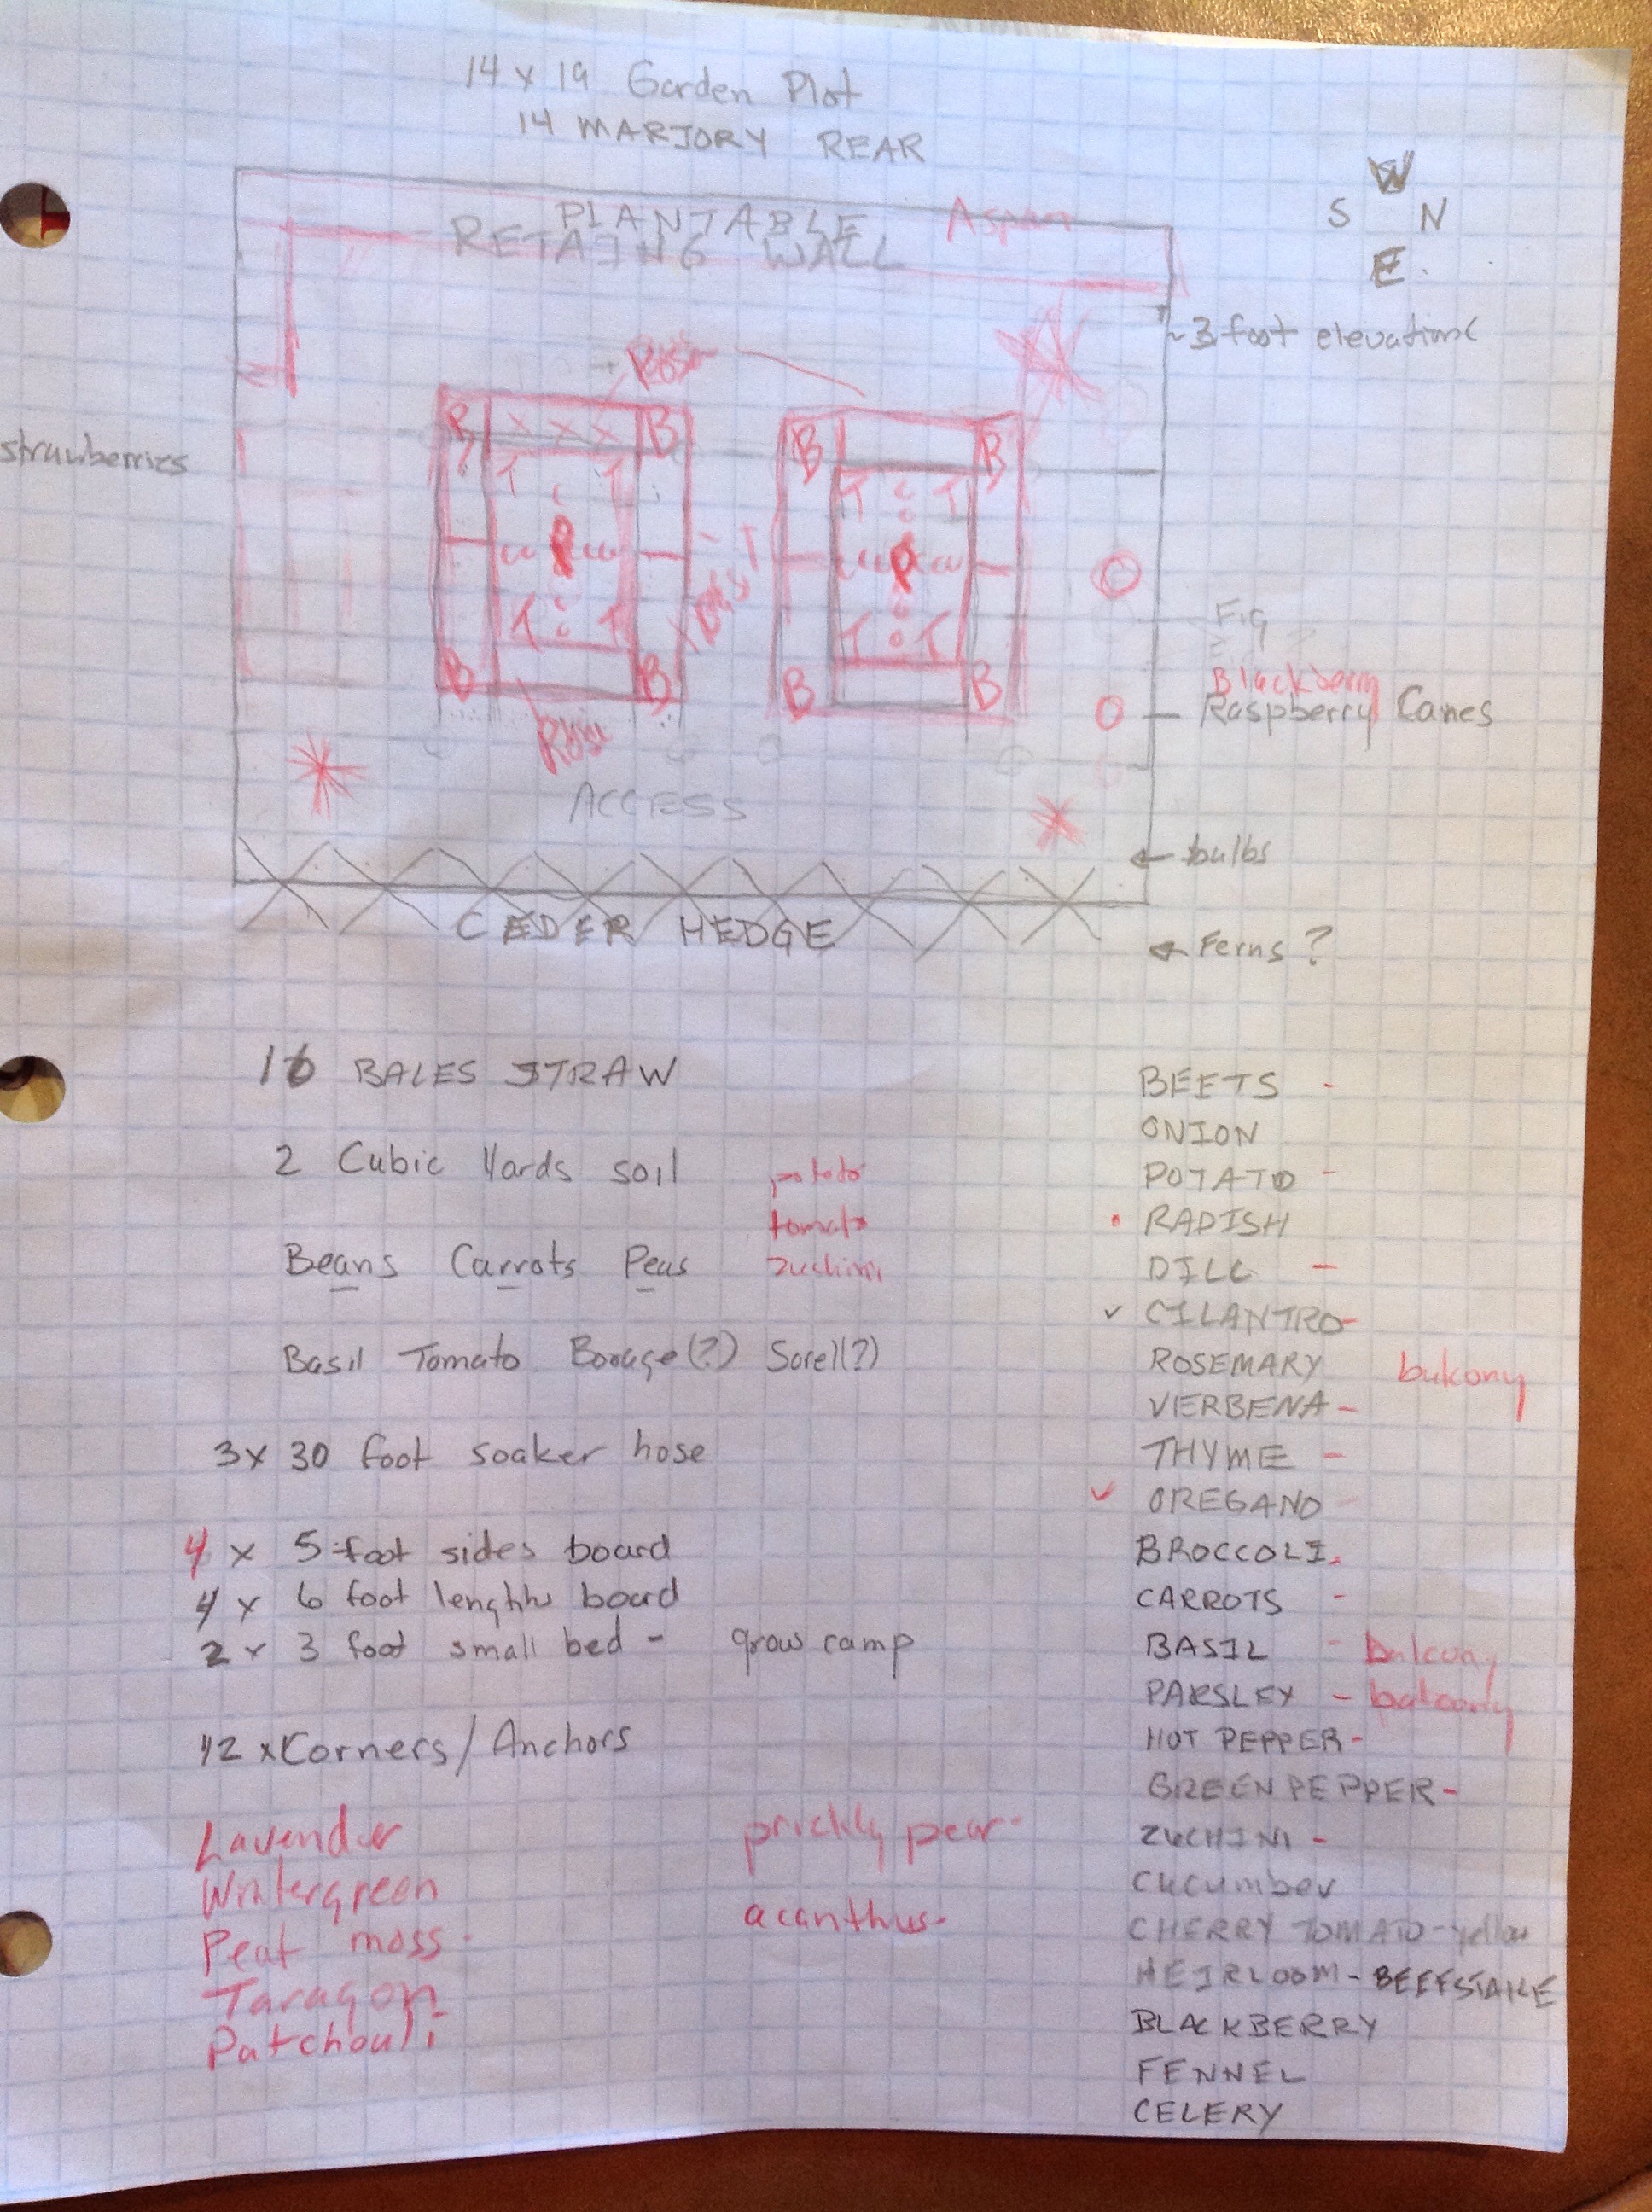 14 x 19 Garden Plot
14 MARJORY REAR
W
S N
E
PLANTABLE
RETAING WALL
Aspen
~3 foot elevation
strawberries
Rose
B B B B
x x x
T T T T
P P
T T T T
B B B B
Rose
Fig
Blackberry
Raspberry Canes
ACCESS
← bulbs
CEDER HEDGE
← Ferns ?
16 BALES STRAW
2 Cubic Yards soil
potato
tomato
zuchini
Beans Carrots Peas
Basil Tomato Borage(?) Sorell(?)
3x 30 foot soaker hose
4 x 5 foot sides board
4 x 6 foot lenghths board
2 x 3 foot small bed - grow camp
12 x Corners/Anchors
Lavender
Wintergreen
Peat moss
Taragon
Patchouli
prickly pear
acanthus
BEETS -
ONION
POTATO -
• RADISH
DILL -
✓ CILANTRO-
ROSEMARY balcony
VERBENA -
THYME -
✓ OREGANO
BROCCOLI
CARROTS -
BASIL - balcony
PARSLEY - balcony
HOT PEPPER -
GREEN PEPPER -
ZUCHINI -
Cucumber
CHERRY TOMATO - yellow
HEIRLOOM - BEEFSTAKE
BLACKBERRY
FENNEL
CELERY